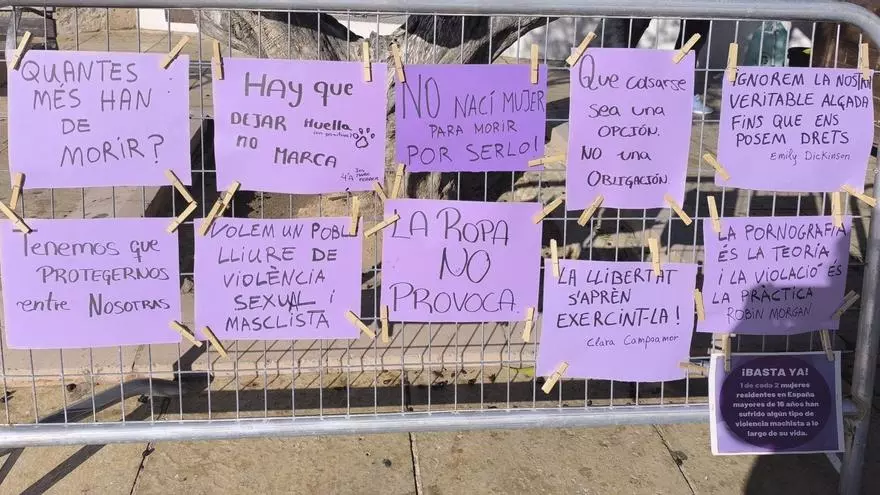 QUANTES
MÉS HAN
DE
MORIR?
Hay que
DEJAR Huella
(en positivo)
no MARCA
4ºA
NO NACÍ MUJER
PARA MORIR
POR SERLO!
Que casarse
sea una
OPCIÓN.
NO una
OBLIGACIÓN.
IGNOREM LA NOSTRA
VERITABLE ALÇADA
FINS QUE ENS
POSEM DRETS
Emily Dickinson
Tenemos que
PROTEGERNOS
entre NOSOTRAS
VOLEM UN POBLE
LLIURE DE
VIOLÈNCIA
SEXUAL I
MASCLISTA
LA ROPA
NO
PROVOCA
LA LLIBERTAT
S'APRÈN
EXERCINT-LA!
Clara Campoamor
LA PORNOGRAFIA
ÉS LA TEORIA
I LA VIOLACIÓ ÉS
LA PRÀCTICA
ROBIN MORGAN
¡BASTA YA!
1 de cada 2 mujeres
residentes en España
mayores de 16 años han
sufrido algún tipo de
violencia machista a lo
largo de su vida.